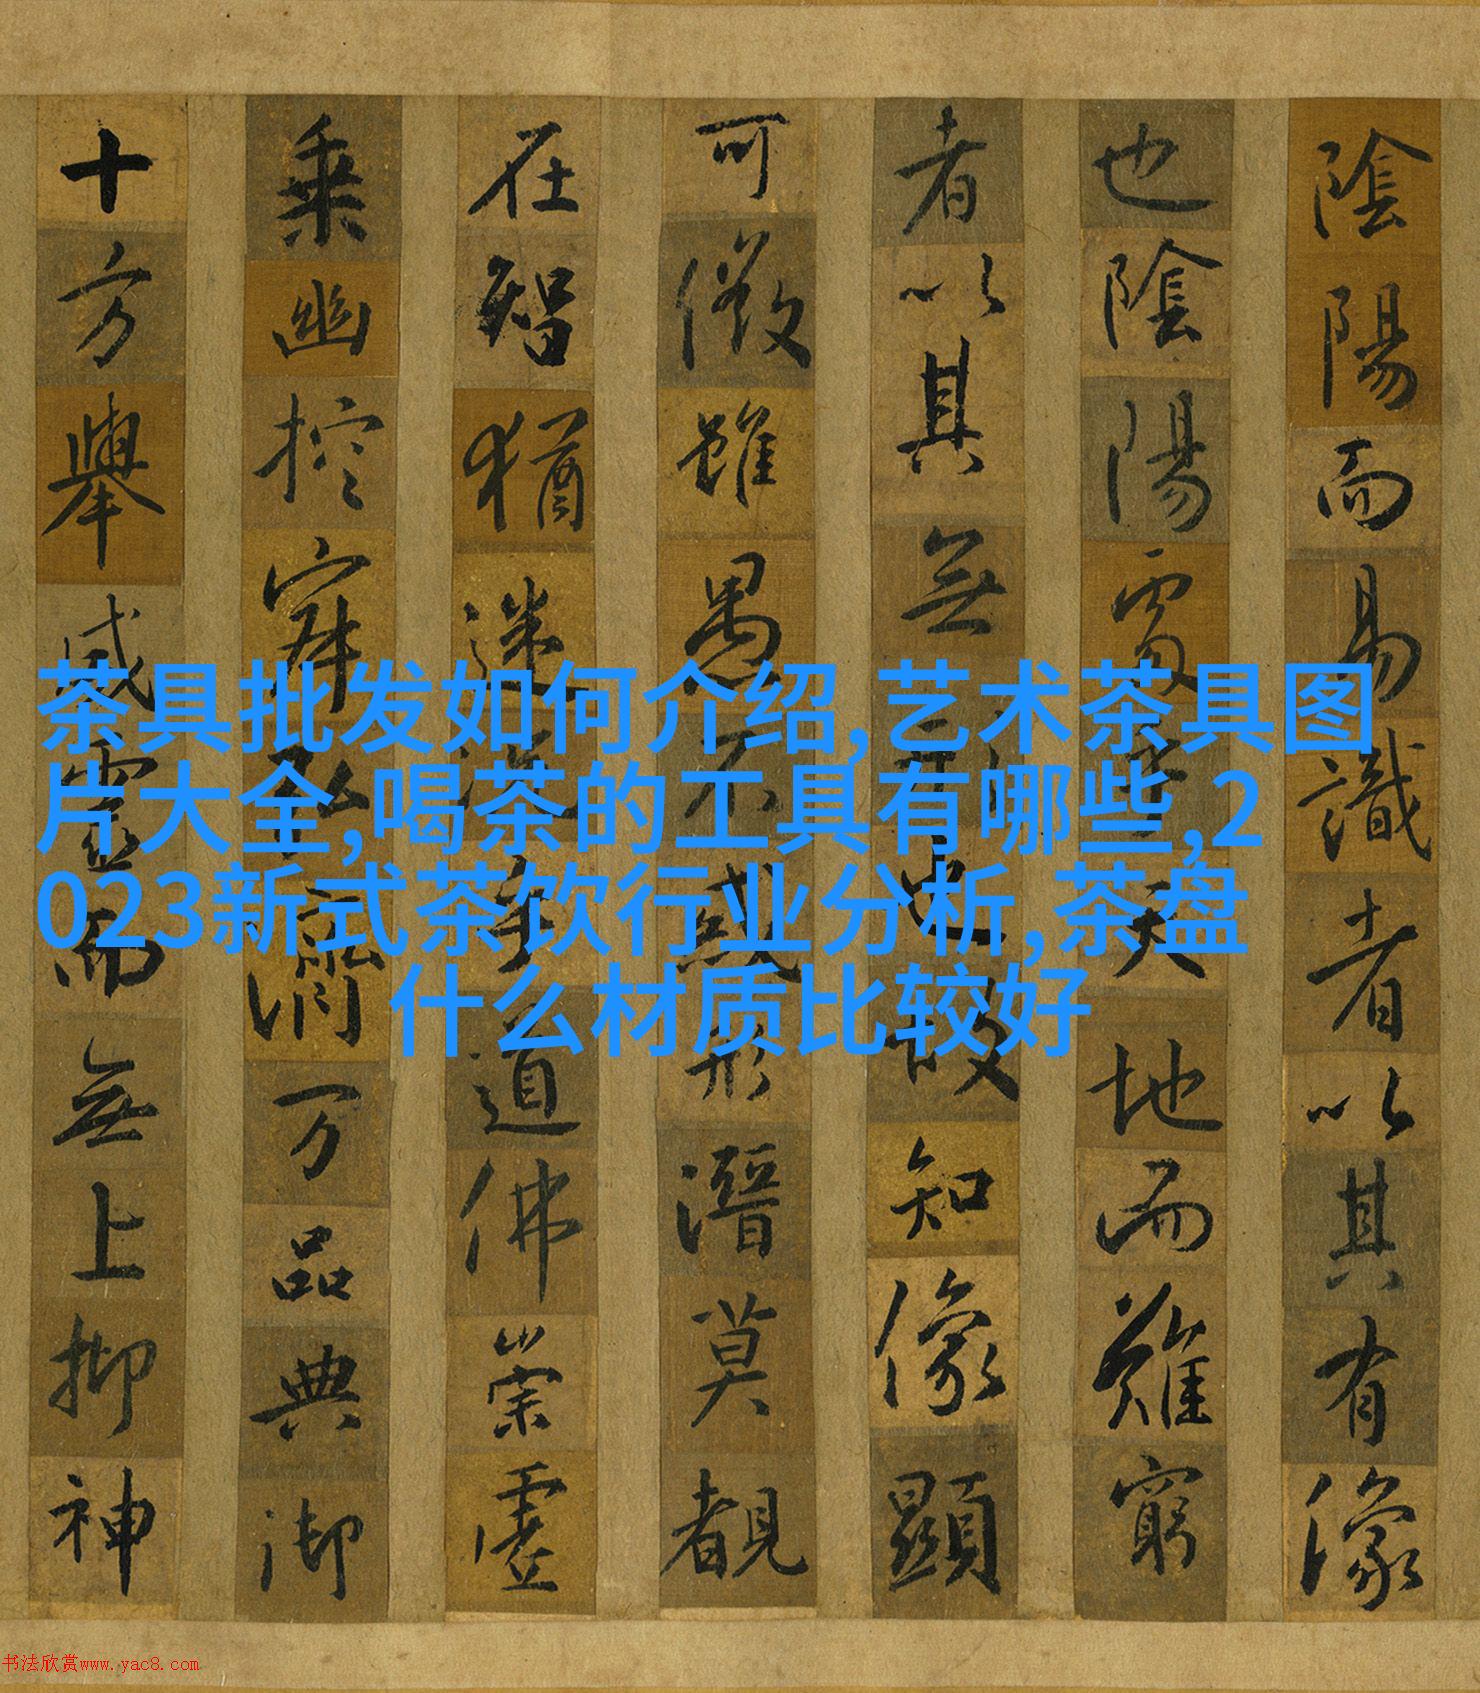 陰陽而易識者以其有像
也陰陽處乎天地而難窮
者以其無形也故知像顯
可徵雖愚不惑形潛莫覩
在智猶迷況乎佛道崇虛
乘幽控寂弘濟万品典御
十方舉威靈而無上抑神
茶具批发如何介绍,艺术茶具图
片大全,喝茶的工具有哪些,2
023新式茶饮行业分析,茶盘
什么材质比较好
书法欣赏www.yac8.com